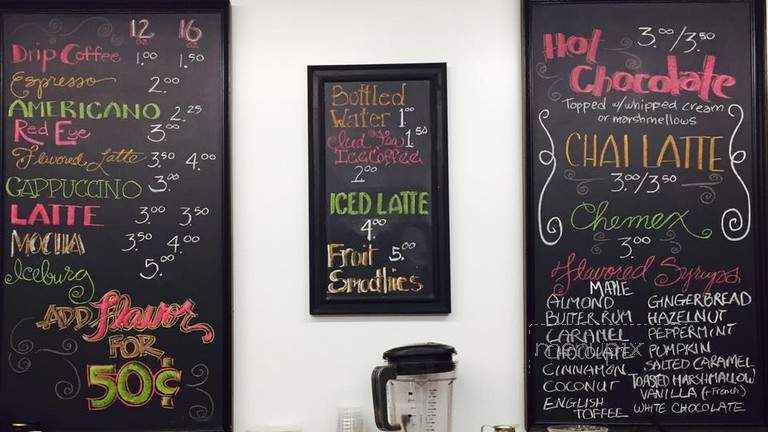 12 16
Drip Coffee 1.00 1.50
Espresso 2.00
AMERICANO 2.25
Red Eye 3.00
Flavored Latte 3.50 4.00
CAPPUCCINO 3.00
LATTE 3.00 3.50
MOCHA 3.50 4.00
Iceburg 5.00
ADD Flavor
FOR
50¢
Bottled
Water 1.00
Iced Tea 1.50
Iced Coffee
2.00
ICED LATTE
4.00
Fruit 5.00
Smoothies
Hot 3.00/3.50
Chocolate
Topped w/whipped cream
or marshmellows
CHAI LATTE
3.00/3.50
Chemex
3.00
Flavored Syrups
MAPLE
ALMOND
BUTTER RUM
CARAMEL
CHOCOLATE
CINNAMON
COCONUT
ENGLISH
TOFFEE
GINGERBREAD
HAZELNUT
PEPPERMINT
PUMPKIN
SALTED CARAMEL
TOASTED MARSHMALLOW
VANILLA (+French)
WHITE CHOCOLATE
menupix